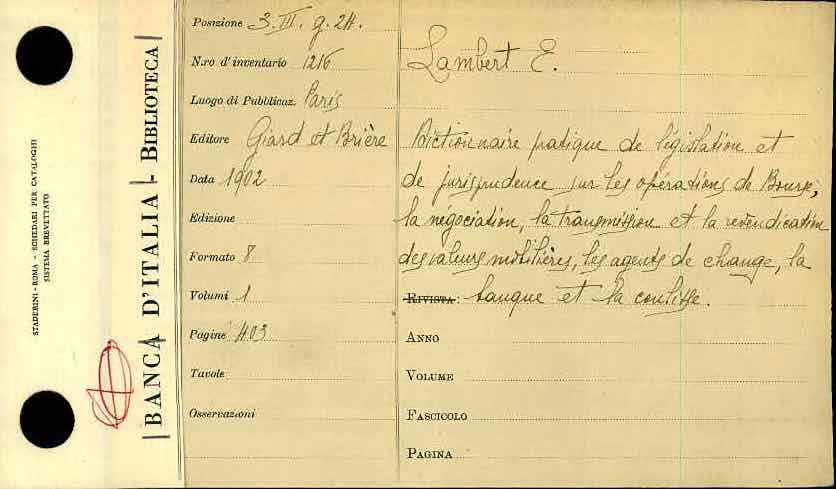 STADERINI - ROMA - SCHEDARI PER CATALOGHI
SISTEMA BREVETTATO
BANCA D'ITALIA - BIBLIOTECA
Posizione 3. III. g. 24.
N.ro d'inventario 1216
Luogo di Pubblicaz. Paris
Editore Giard et Brière
Data 1902
Edizione
Formato 8
Volumi 1
Pagine 403
Tavole
Osservazioni
Lambert E.
Dictionnaire pratique de législation et
de jurisprudence sur les opérations de Bourse,
la négociation, la transmission et la revendication
des valeurs mobilières, les agents de change, la
RIVISTA: banque et la coulisse.
ANNO
VOLUME
FASCICOLO
PAGINA